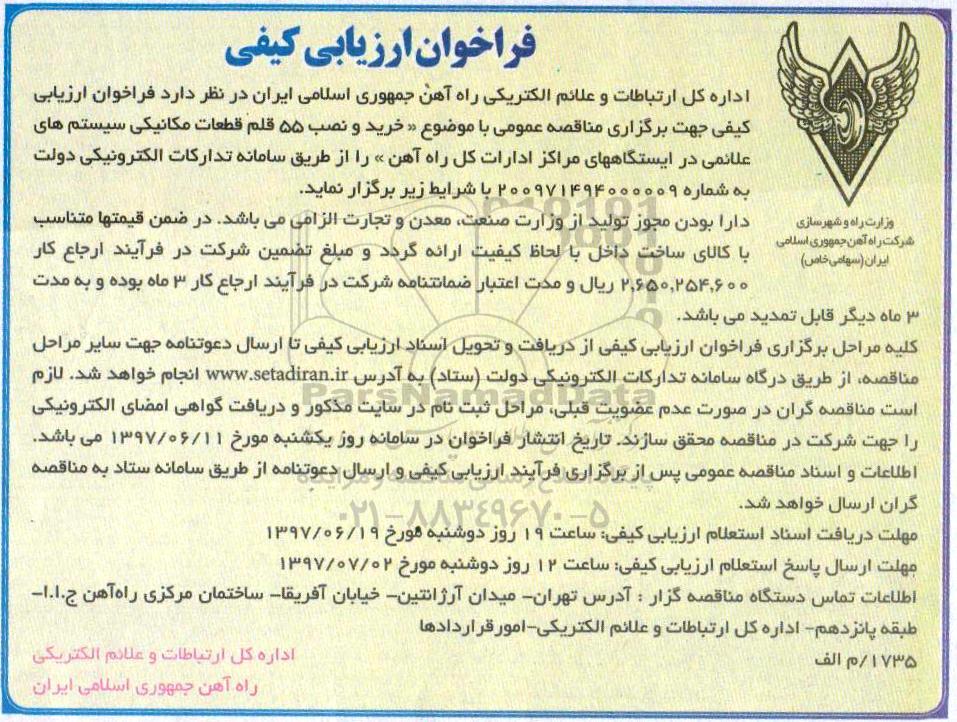 فراخوان ارزیابی کیفی
اداره کل ارتباطات و علائم الکتریکی راه آهن جمهوری اسلامی ایران در نظر دارد فراخوان ارزیابی
کیفی جهت برگزاری مناقصه عمومی با موضوع « خرید و نصب ۵۵ قلم قطعات مکانیکی سیستم های
علائمی در ایستگاههای مراکز ادارات کل راه آهن » را از طریق سامانه تدارکات الکترونیکی دولت
به شماره ۲۰۰۹۷۱۴۹۴۰۰۰۰۰۹ با شرایط زیر برگزار نماید.
وزارت راه و شهرسازی
شرکت راه آهن جمهوری اسلامی
ایران (سهامی خاص)
دارا بودن مجوز تولید از وزارت صنعت، معدن و تجارت الزامی می باشد. در ضمن قیمتها متناسب
با کالای ساخت داخل با لحاظ کیفیت ارائه گردد و مبلغ تضمین شرکت در فرآیند ارجاع کار
۲,۶۵۰,۲۵۴,۶۰۰ ریال و مدت اعتبار ضمانتنامه شرکت در فرآیند ارجاع کار ۳ ماه بوده و به مدت
۳ ماه دیگر قابل تمدید می باشد.
کلیه مراحل برگزاری فراخوان ارزیابی کیفی از دریافت و تحویل اسناد ارزیابی کیفی تا ارسال دعوتنامه جهت سایر مراحل
مناقصه، از طریق درگاه سامانه تدارکات الکترونیکی دولت (ستاد) به آدرس www.setadiran.ir انجام خواهد شد. لازم
است مناقصه گران در صورت عدم عضویت قبلی، مراحل ثبت نام در سایت مذکور و دریافت گواهی امضای الکترونیکی
را جهت شرکت در مناقصه محقق سازند. تاریخ انتشار فراخوان در سامانه روز یکشنبه مورخ ۱۳۹۷/۰۶/۱۱ می باشد.
اطلاعات و اسناد مناقصه عمومی پس از برگزاری فرآیند ارزیابی کیفی و ارسال دعوتنامه از طریق سامانه ستاد به مناقصه
گران ارسال خواهد شد.
مهلت دریافت اسناد استعلام ارزیابی کیفی: ساعت ۱۹ روز دوشنبه مورخ ۱۳۹۷/۰۶/۱۹
مهلت ارسال پاسخ استعلام ارزیابی کیفی: ساعت ۱۲ روز دوشنبه مورخ ۱۳۹۷/۰۷/۰۲
اطلاعات تماس دستگاه مناقصه گزار : آدرس تهران- میدان آرژانتین- خیابان آفریقا- ساختمان مرکزی راه‌آهن ج.ا.ا-
طبقه پانزدهم- اداره کل ارتباطات و علائم الکتریکی-امورقراردادها
۱۷۳۵/م الف
اداره کل ارتباطات و علائم الکتریکی
راه آهن جمهوری اسلامی ایران
ParsNamadData
۰۲۱-۸۸۳۴۹۶۷۰-۵